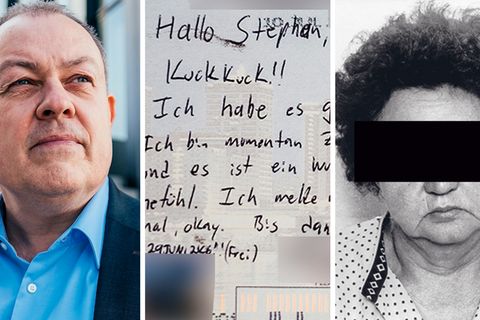 Hallo Stephan,
KuckKuck!!
Ich habe es g
Ich bin momentan Z
nd es ist ein wu
efühl. Ich melde m
nal, okay. Bis dan
(Frei)